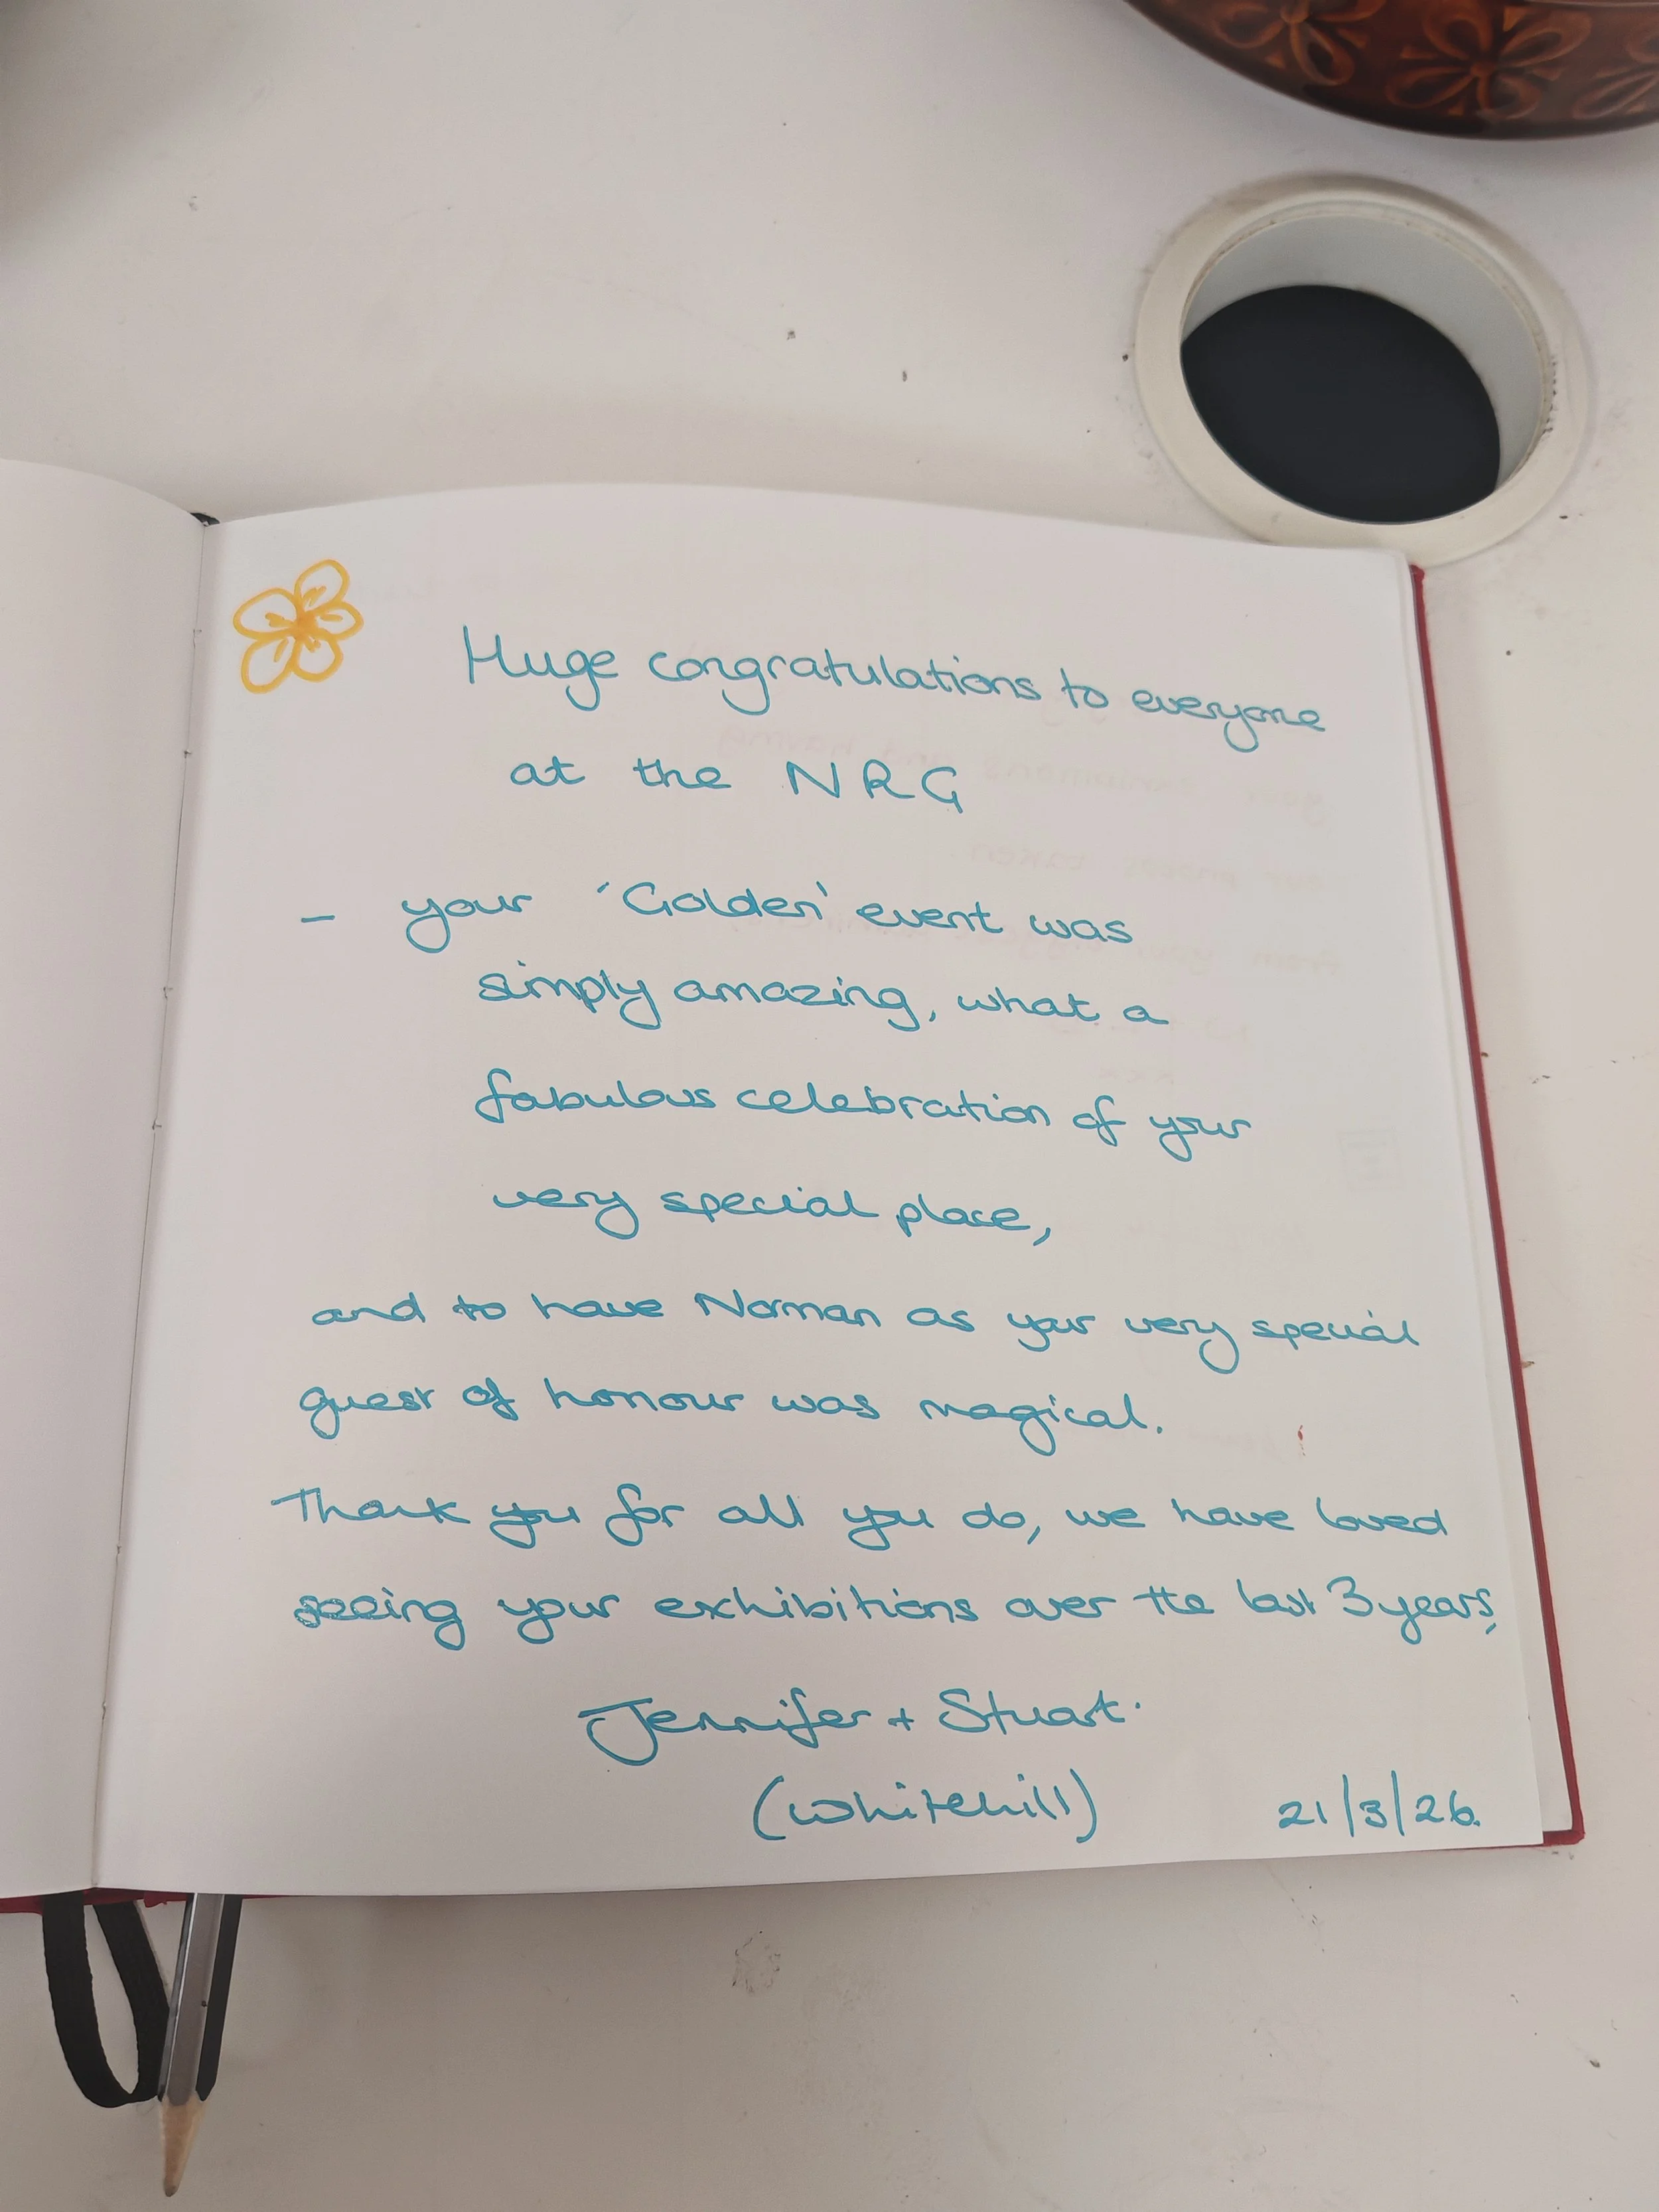 Huge congratulations to everyone
at the NRG
– your 'Golden' event was
simply amazing, what a
fabulous celebration of your
very special place,
and to have Norman as your very special
guest of honour was magical.
Thank you for all you do, we have loved
seeing your exhibitions over the last 3 years,
Jennifer + Stuart.
(Whitehill) 21/3/26.